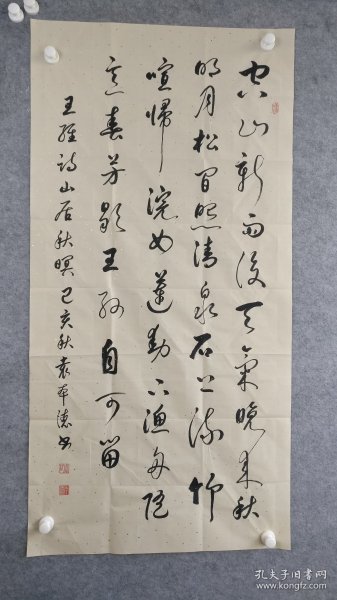 空山新雨後天氣晚来秋
明月松間照清泉石上流竹
喧歸浣女蓮動下漁舟随
意春芳歇王孫自可留
王維詩山居秋暝己亥秋袁本德書
孔夫子旧书网
www.kongfz.com